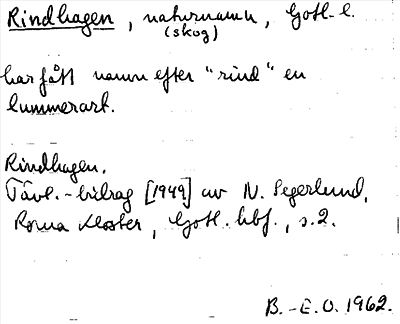 Rindhagen, naturnamn, Gotl. l.
(skog)
har fått namn efter "rind" en
lummerart.
Rindhagen.
Tävl.-bidrag [1949] av N. Segerlund,
Roma Kloster, Gotl. hbf., s.2.
B.-E.O. 1962.